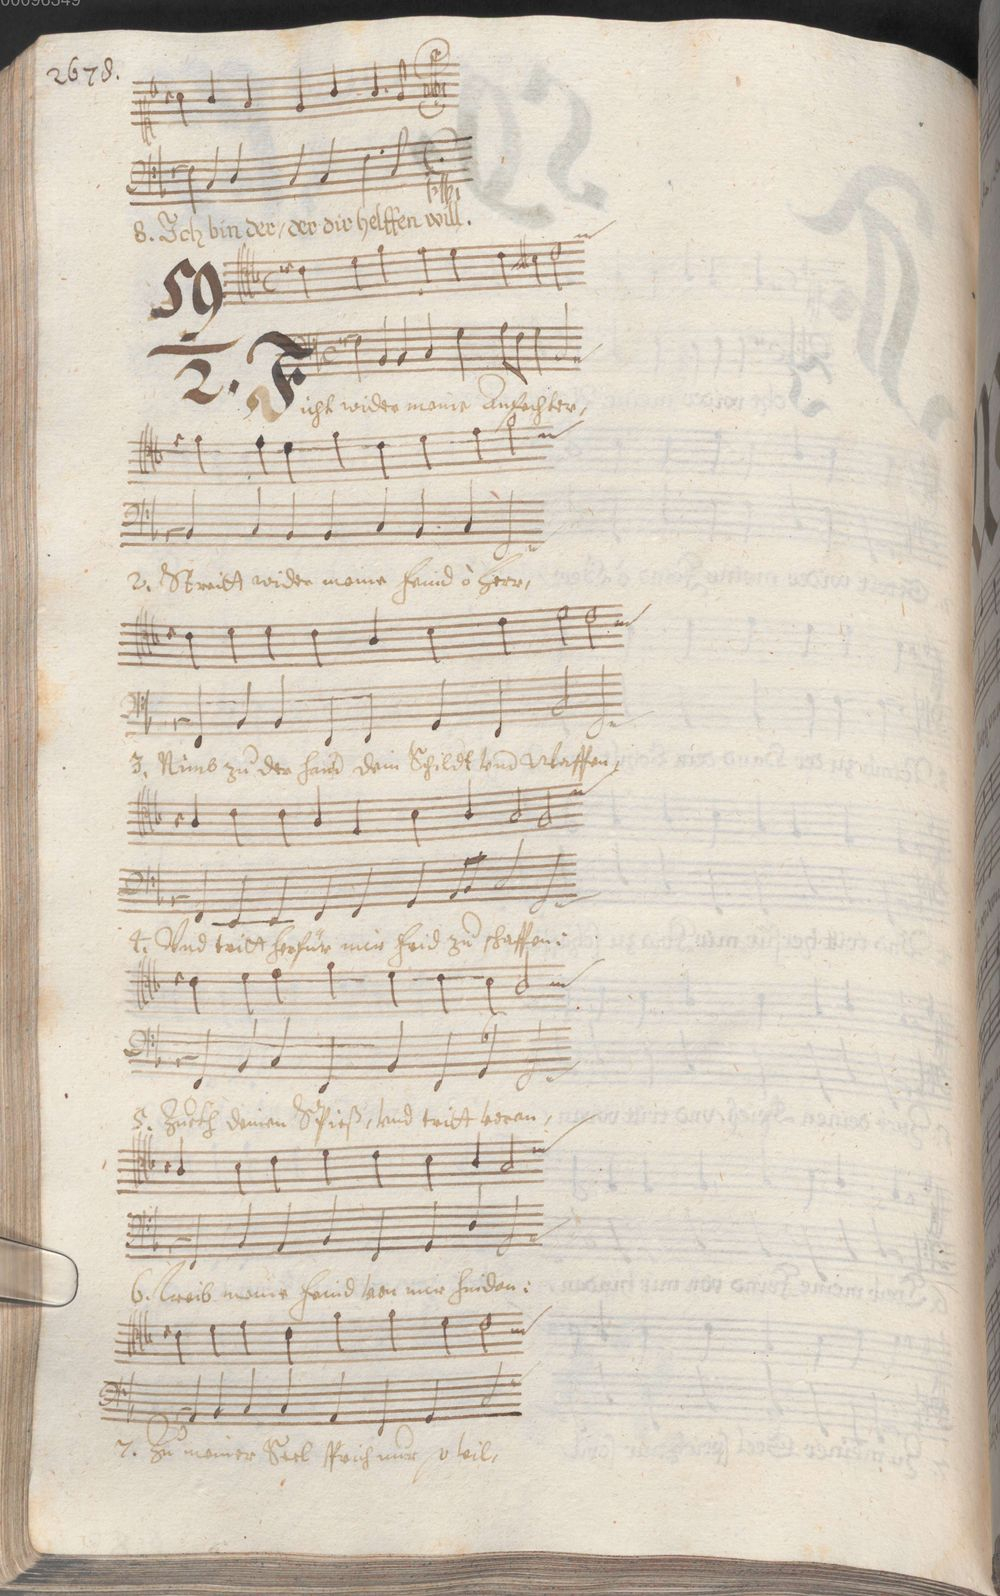 00096349
2678.
8. Ich bin der, der dir helffen will.
59
2. Ficht wider meine Anfechter,
2. Streitt wider meine feind ò herr,
3. Nimb zu der hand dein Schildt vnd Waffen,
4. Vnd tritt herfür mir frid zu schaffen:
5. Zuckh deinen Spieß, vnd tritt voran,
6. Treib meine feind von mir hindan:
7. Zu meiner Seel sprich nur